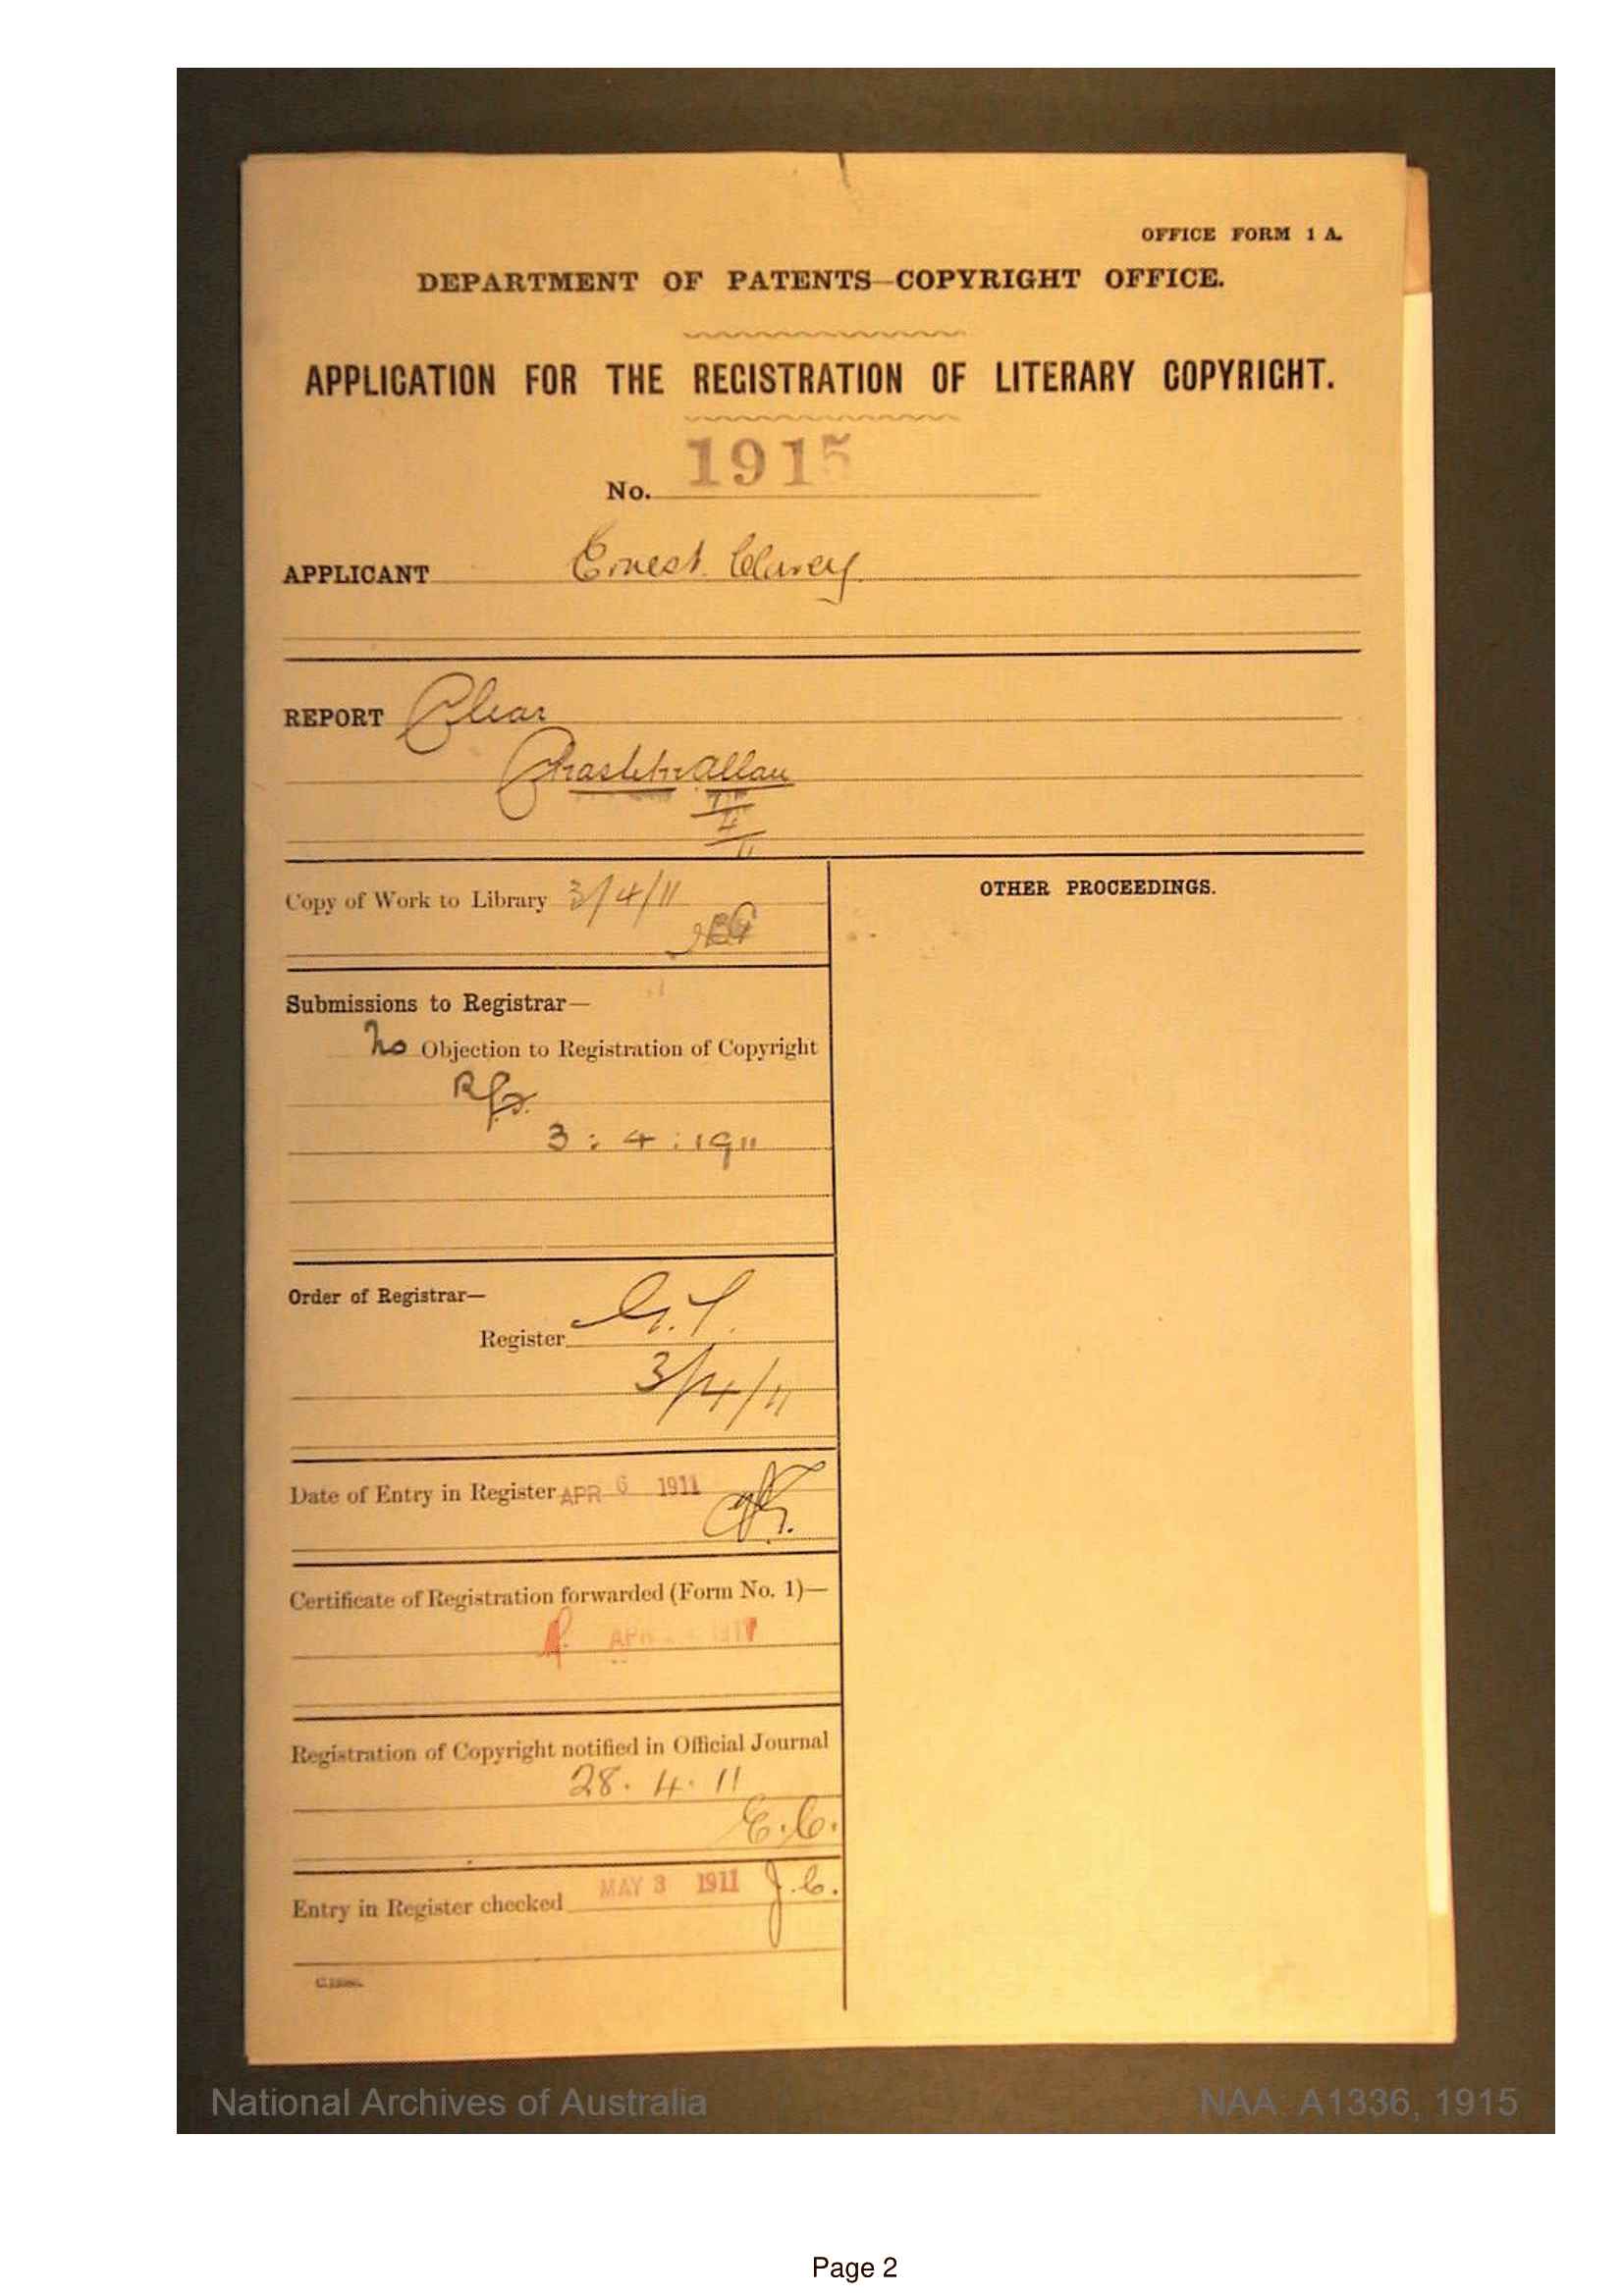 OFFICE FORM 1 A.
DEPARTMENT OF PATENTS—COPYRIGHT OFFICE.
APPLICATION FOR THE REGISTRATION OF LITERARY COPYRIGHT.
No. 1915
APPLICANT Ernest Clarey
REPORT Clear
Allan
Copy of Work to Library 3/4/11
OTHER PROCEEDINGS.
Submissions to Registrar—
No Objection to Registration of Copyright
3 : 4 : 1911
Order of Registrar—
Register
3/4/11
Date of Entry in Register APR 6 1911
Certificate of Registration forwarded (Form No. 1)—
APR 1911
Registration of Copyright notified in Official Journal
28. 4. 11
E.C.
Entry in Register checked MAY 3 1911 J.C.
National Archives of Australia
NAA: A1336, 1915
Page 2